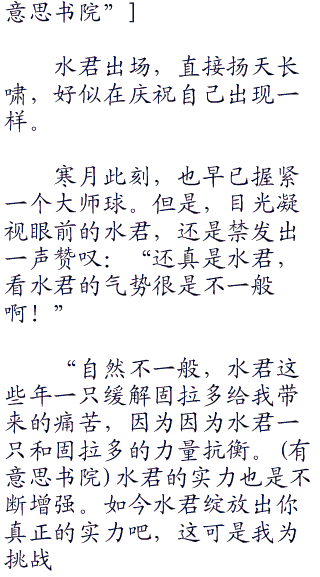 意思书院”]
水君出场，直接扬天长
啸，好似在庆祝自己出现一
样。
寒月此刻，也早已握紧
一个大师球。但是，目光凝
视眼前的水君，还是禁发出
一声赞叹：“还真是水君，
看水君的气势很是不一般
啊！”
“自然不一般，水君这
些年一只缓解固拉多给我带
来的痛苦，因为因为水君一
只和固拉多的力量抗衡。(有
意思书院)水君的实力也是不
断增强。如今水君绽放出你
真正的实力吧，这可是我为
挑战